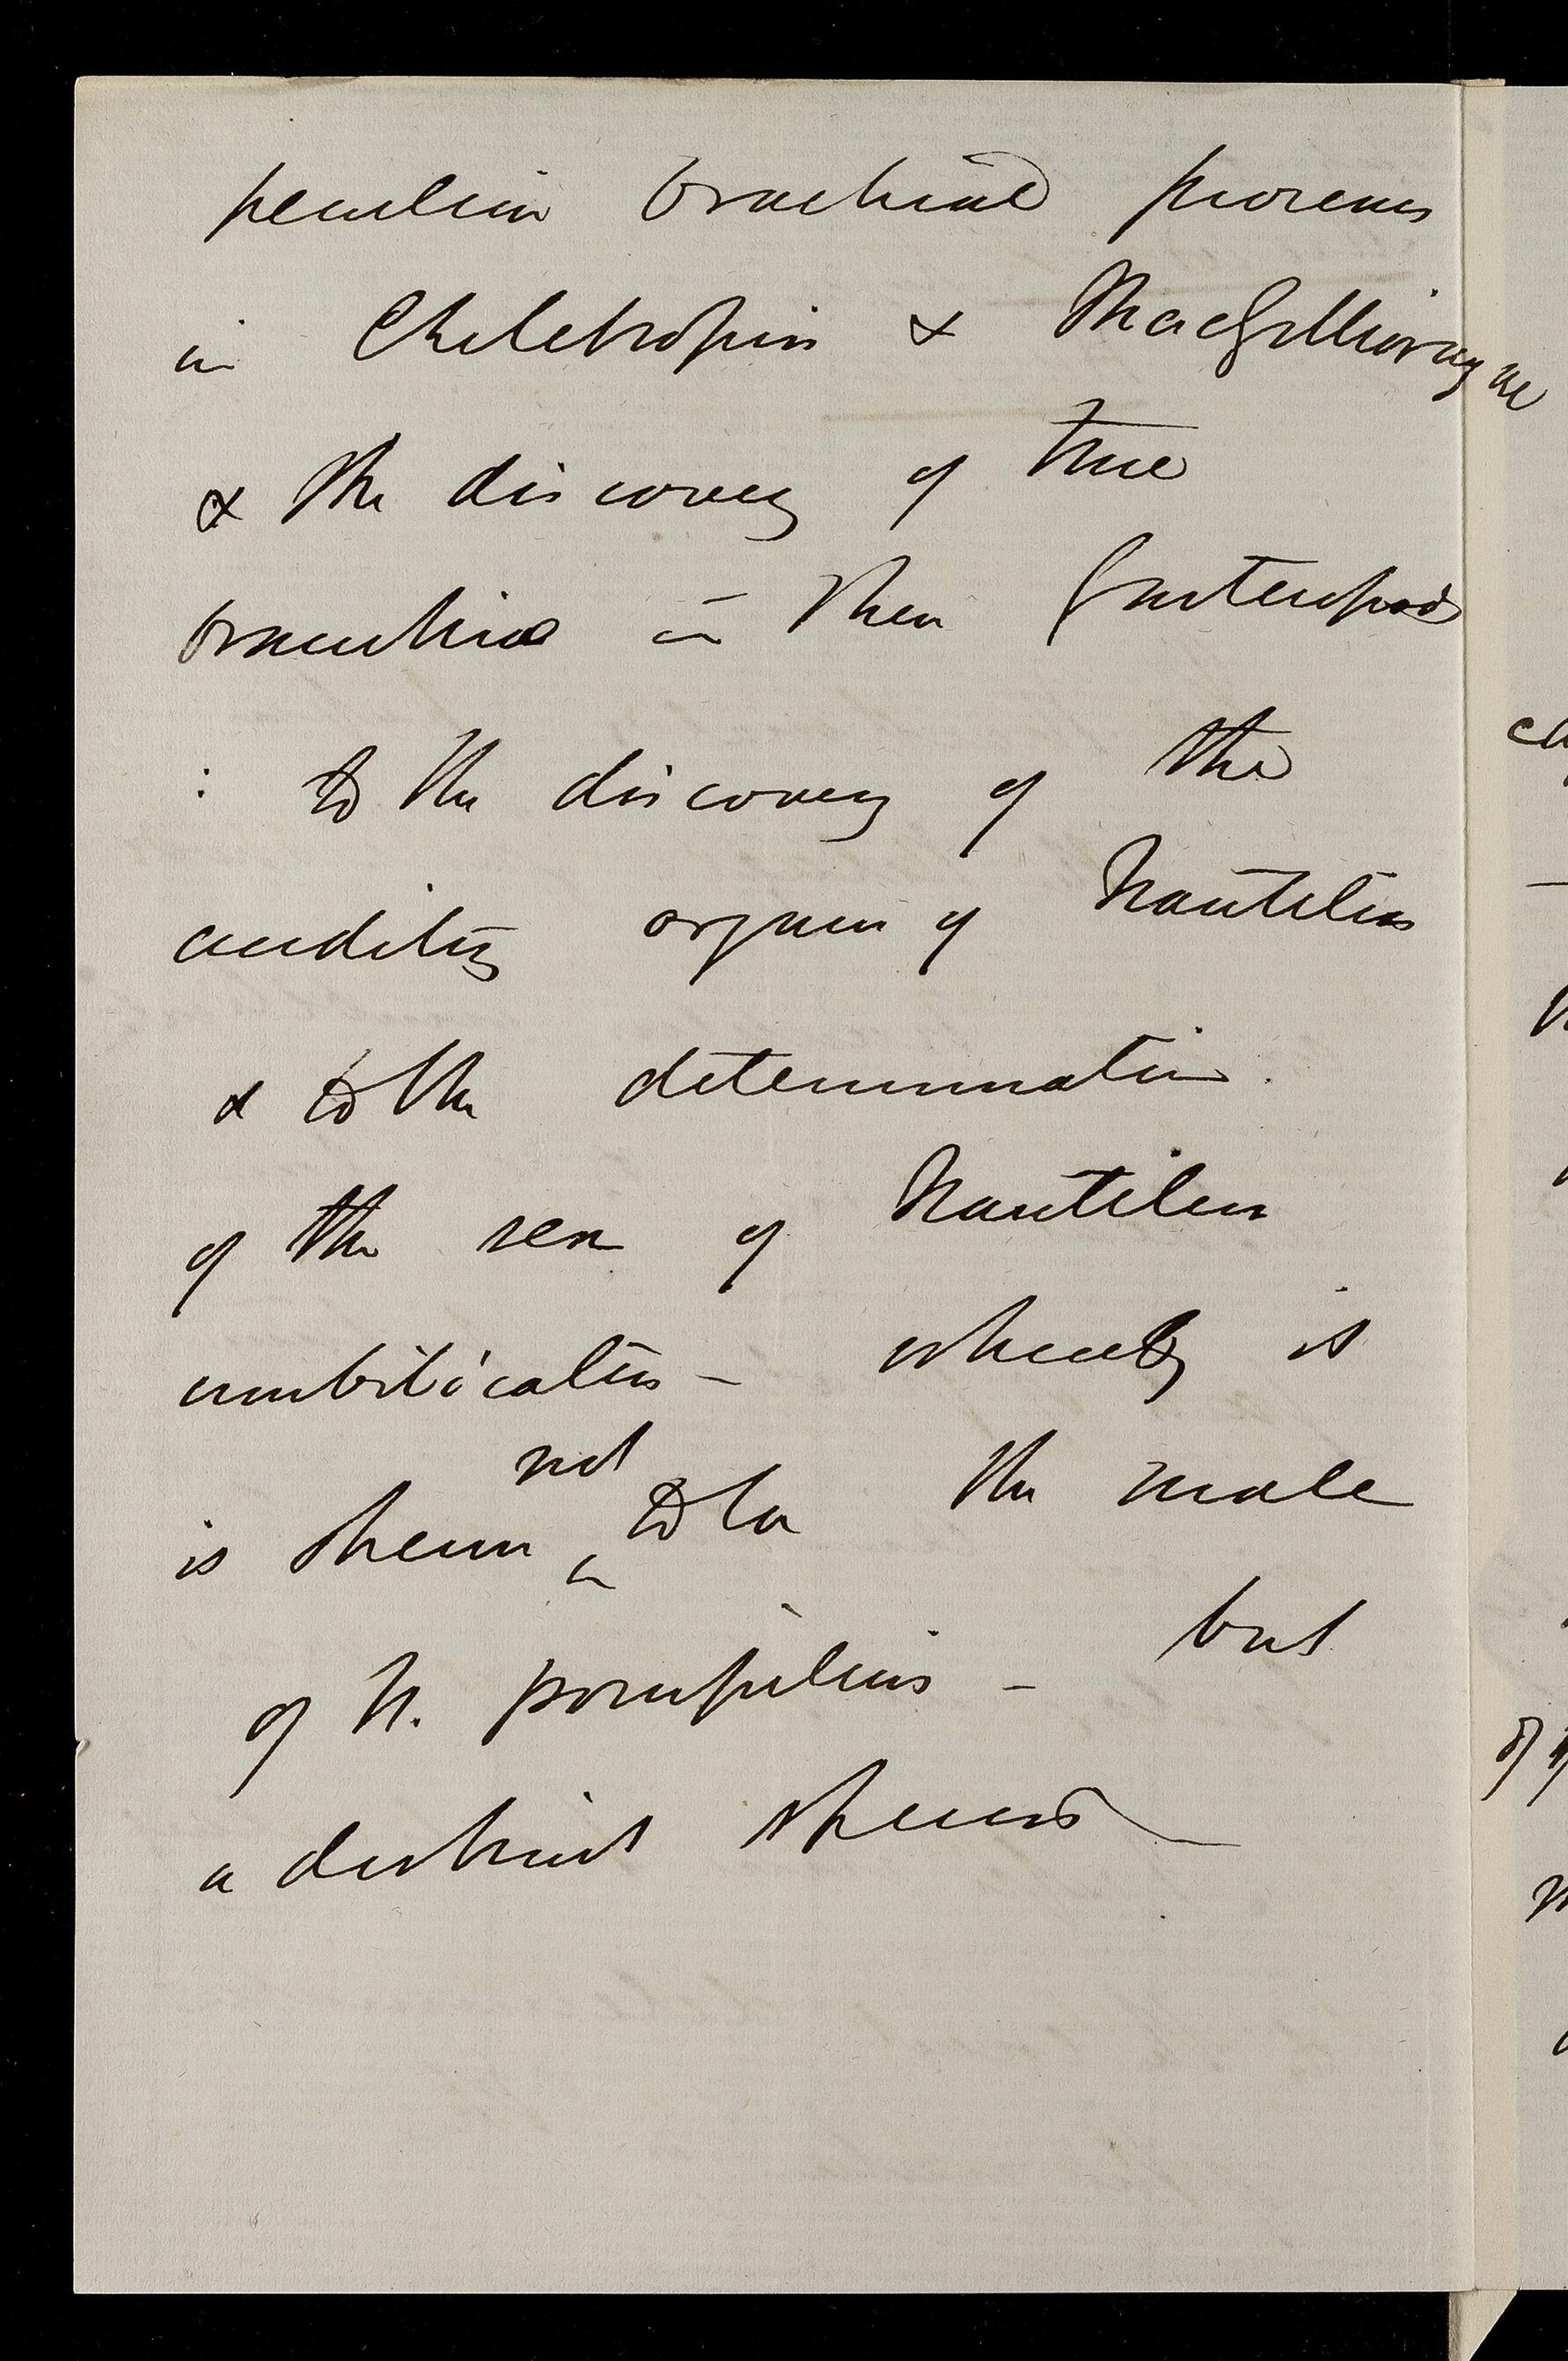 peculiar brachial processes
in Cheletropis & MacGillivrayae
& the discovery of true
branchiae in these Gasteropods
: to the discovery of the
auditory organ of Nautilus
& to the determination
of the sex of Nautilus
umbilicatus – whereby it
is shewn not to be the male
of N. pompilius – but
a distinct species